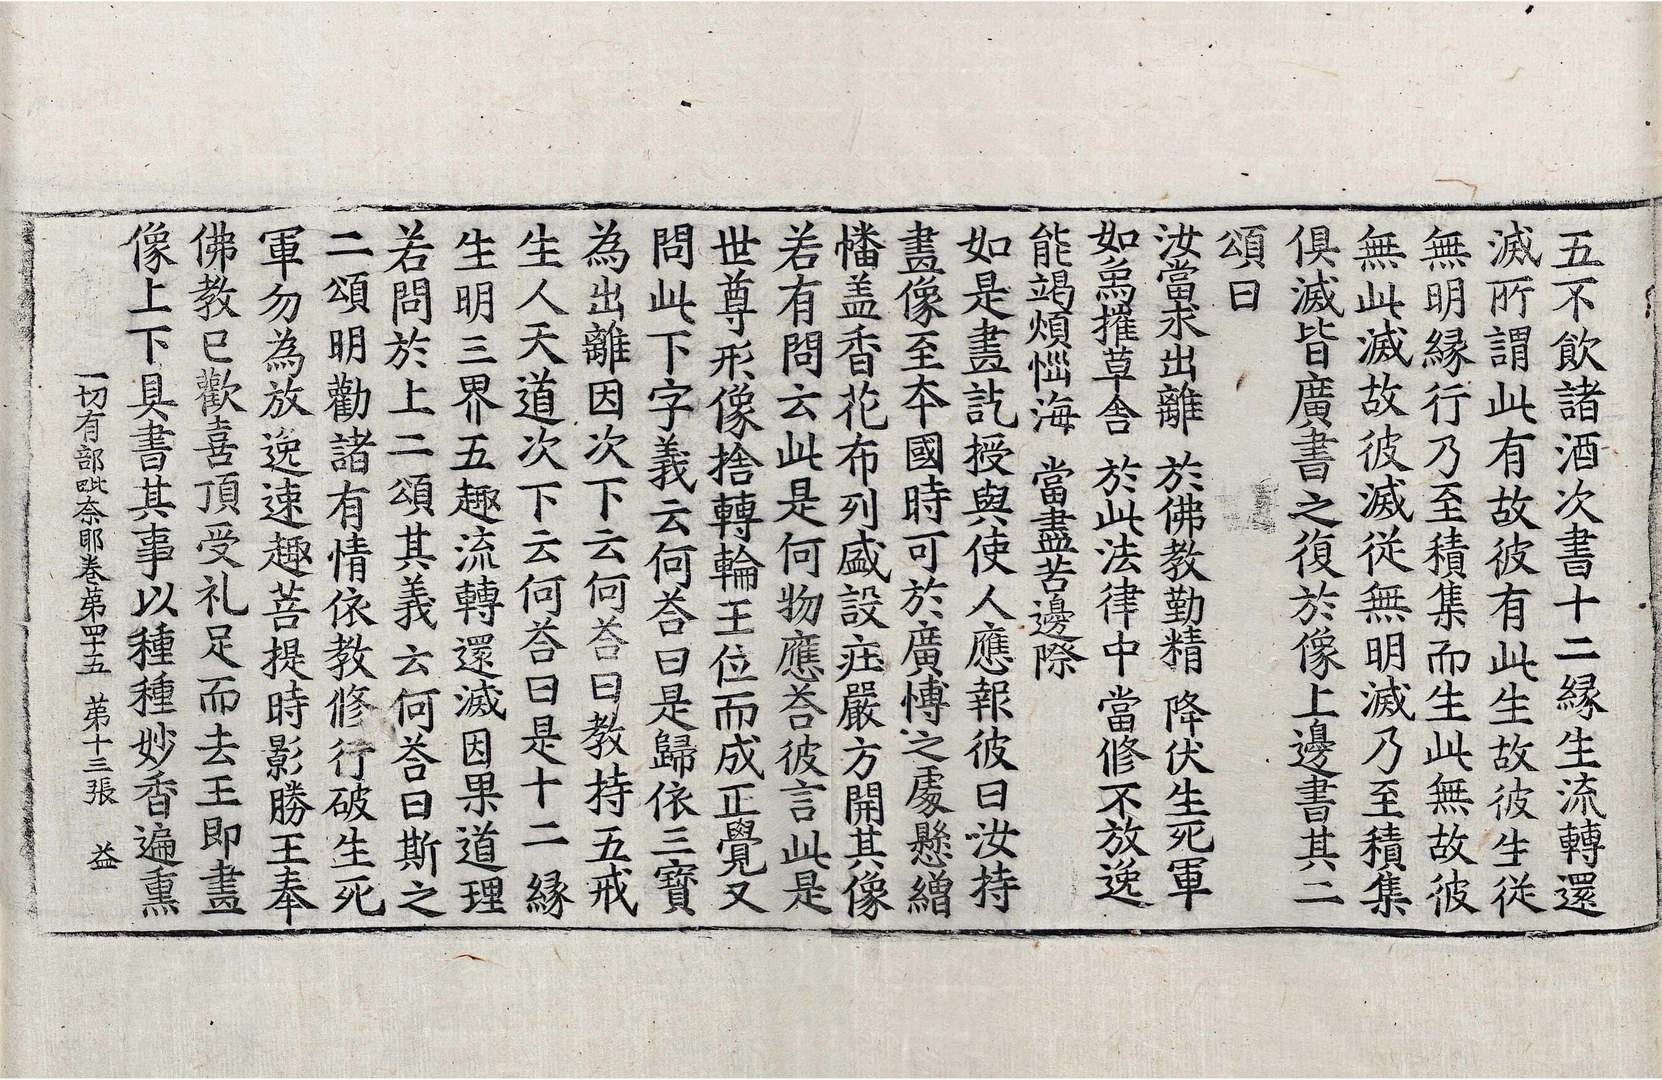 五不飲諸酒次書十二縁生流轉還
滅所謂此有故彼有此生故彼生從
無明縁行乃至積集而生此無故彼
無此滅故彼滅從無明滅乃至積集
俱滅皆廣書之復於像上邊書其二
頌曰
汝當求出離 於佛教勤精 降伏生死軍
如象摧草舍 於此法律中 當修不放逸
能竭煩惱海 當盡苦邊際
如是畫訖授與使人應報彼曰汝持
畫像至本國時可於廣博之處懸繒
幡盖香花布列盛設莊嚴方開其像
若有問云此是何物應荅彼言此是
世尊形像捨轉輪王位而成正覺又
問此下字義云何荅曰是歸依三寶
為出離因次下云何荅曰教持五戒
生人天道次下云何荅曰是十二縁
生明三界五趣流轉還滅因果道理
若問於上二頌其義云何荅曰斯之
二頌明勸諸有情依教修行破生死
軍勿為放逸速趣菩提時影勝王奉
佛教已歡喜頂受礼足而去王即畫
像上下具書其事以種種妙香遍熏
一切有部毗奈耶卷第四十五 第十三張 益